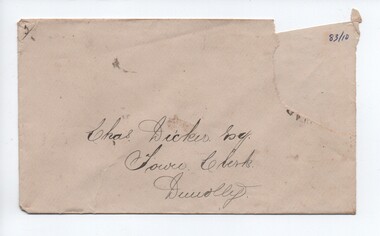 83/10
Chas. Dicker Esq.
Town Clerk
Dunolly